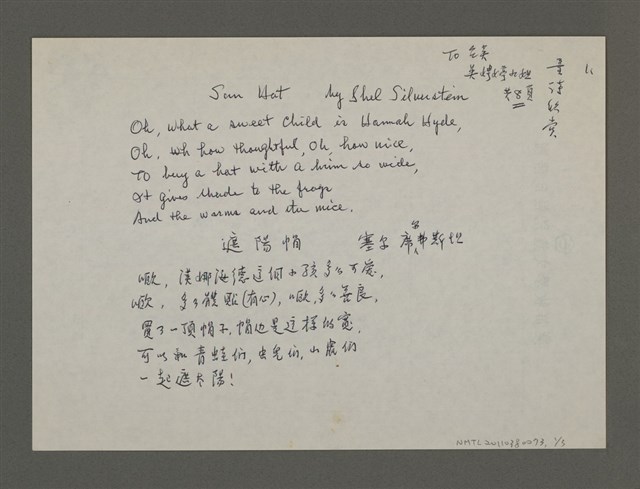 To
共8頁
童詩欣賞
Sun Hat by Shel Silverstein
Oh, what a sweet child is Hannah Hyde,
Oh, wh how thoughtful, Oh, how nice,
To buy a hat with a brim so wide,
It gives shade to the frogs
And the worms and the mice.
遮陽帽 塞尔 席尔弗斯坦
噉，漢娜海德這個小孩多么可愛，
噉，多么體貼(有心)，噉，多么善良，
買了一頂帽子，帽边是这样的寬，
可以和青蛙们，虫兒们，小鼠们
一起遮太陽！
NMTL20110380073, 1/5